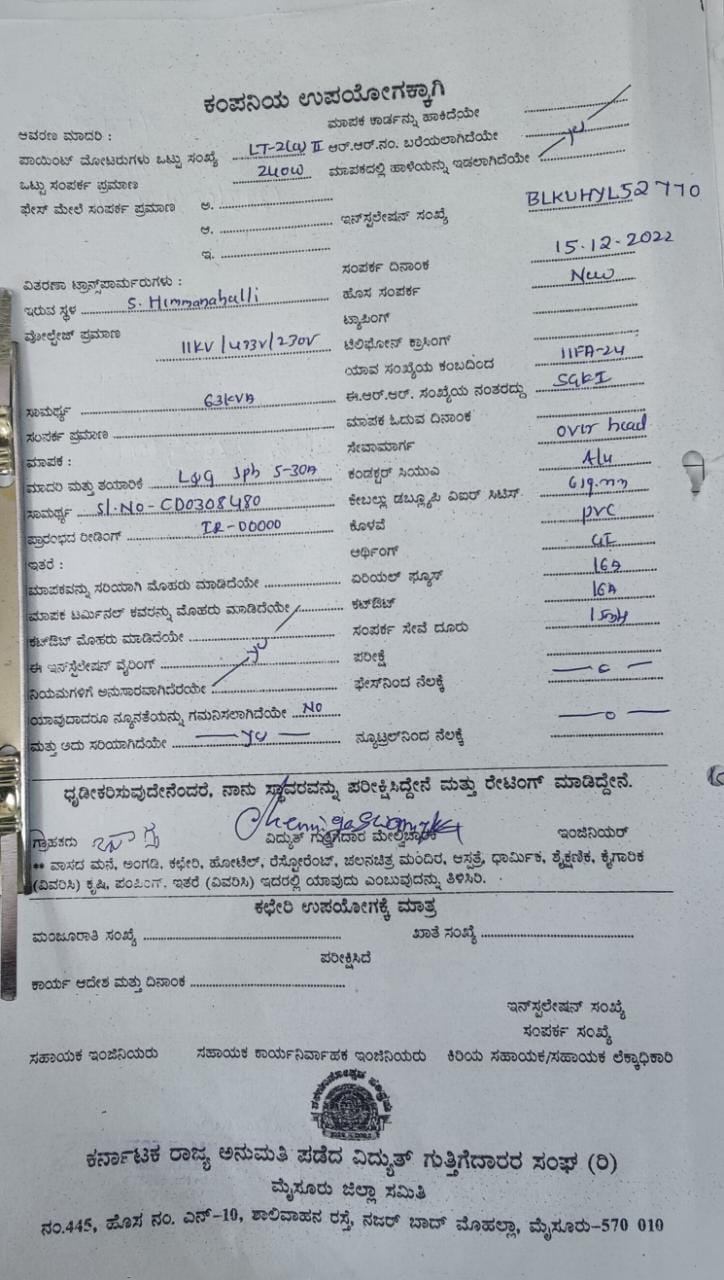 ಕಂಪನಿಯ ಉಪಯೋಗಕ್ಕಾಗಿ
ಆವರಣ ಮಾದರಿ : ಮಾಪಕ ಕಾರ್ಡನ್ನು ಹಾಕಿದೆಯೇ ....................
ಪಾಯಿಂಟ್ ಮೋಟರುಗಳು ಒಟ್ಟು ಸಂಖ್ಯೆ LT-2(a) II ಆರ್.ಆರ್.ನಂ. ಬರೆಯಲಾಗಿದೆಯೇ
ಒಟ್ಟು ಸಂಪರ್ಕ ಪ್ರಮಾಣ 240W ಮಾಪಕದಲ್ಲಿ ಹಾಳೆಯನ್ನು ಇಡಲಾಗಿದೆಯೇ yes
ಫೇಸ್ ಮೇಲೆ ಸಂಪರ್ಕ ಪ್ರಮಾಣ ಅ. ....................
ಆ. .................... ಇನ್‌ಸ್ಟಲೇಷನ್ ಸಂಖ್ಯೆ BLKUHYL52770
ಇ. ....................
ವಿತರಣಾ ಟ್ರಾನ್ಸ್‌ಫಾರ್ಮರುಗಳು : ಸಂಪರ್ಕ ದಿನಾಂಕ 15.12.2022
ಇರುವ ಸ್ಥಳ S. Hemmanahalli ಹೊಸ ಸಂಪರ್ಕ New
ವೋಲ್ಟೇಜ್ ಪ್ರಮಾಣ ಟ್ಯಾಪಿಂಗ್ ....................
11KV/433V/230V ಟೆಲಿಫೋನ್ ಕ್ರಾಸಿಂಗ್ ....................
ಯಾವ ಸಂಖ್ಯೆಯ ಕಂಬದಿಂದ 11FA-24
ಸಾಮರ್ಥ್ಯ 63KVA ಈ.ಆರ್.ಆರ್. ಸಂಖ್ಯೆಯ ನಂತರದ್ದು
ಸಂಪರ್ಕ ಪ್ರಮಾಣ .................... ಮಾಪಕ ಓದುವ ದಿನಾಂಕ ....................
ಮಾಪಕ : ಸೇವಾಮಾರ್ಗ over head
ಮಾದರಿ ಮತ್ತು ತಯಾರಿಕೆ L&G 1ph 5-30A ಕಂಡಕ್ಟರ್ ಸಿಯುಎ Alu
ಸಾಮರ್ಥ್ಯ Sl.No-CD0308480 ಕೇಬಲ್ಲು ಡಬ್ಲ್ಯೂಪಿ ವಿಐರ್ ಸಿಟಿಸ್ 6sq.mm
ಪ್ರಾರಂಭದ ರೀಡಿಂಗ್ IR-00000 ಕೊಳವೆ PVC
ಇತರೆ : ಅರ್ಥಿಂಗ್ GI
ಮಾಪಕವನ್ನು ಸರಿಯಾಗಿ ಮೊಹರು ಮಾಡಿದೆಯೇ .................... ಏರಿಯಲ್ ಫ್ಯೂಸ್ 16A
ಮಾಪಕ ಟರ್ಮಿನಲ್ ಕವರನ್ನು ಮೊಹರು ಮಾಡಿದೆಯೇ .......... ಕಟ್‌ಔಟ್ 16A
ಕಟ್‌ಔಟ್ ಮೊಹರು ಮಾಡಿದೆಯೇ .................... ಸಂಪರ್ಕ ಸೇವೆ ದೂರು 15M
ಈ ಇನ್‌ಸ್ಟೆಲೇಷನ್ ವೈರಿಂಗ್ yes ಪರೀಕ್ಷೆ ....................
ನಿಯಮಗಳಿಗೆ ಅನುಸಾರವಾಗಿದೆರೆಯೇ .................... ಫೇಸ್‌ನಿಂದ ನೆಲಕ್ಕೆ — 0 —
ಯಾವುದಾದರೂ ನ್ಯೂನತೆಯನ್ನು ಗಮನಿಸಲಾಗಿದೆಯೇ NO
ಮತ್ತು ಅದು ಸರಿಯಾಗಿದೆಯೇ — yes — ನ್ಯೂಟ್ರಲ್‌ನಿಂದ ನೆಲಕ್ಕೆ — 0 —
ಧೃಡೀಕರಿಸುವುದೇನೆಂದರೆ, ನಾನು ಸ್ಥಾವರವನ್ನು ಪರೀಕ್ಷಿಸಿದ್ದೇನೆ ಮತ್ತು ರೇಟಿಂಗ್ ಮಾಡಿದ್ದೇನೆ.
ಗ್ರಾಹಕರು ವಿದ್ಯುತ್ ಗುತ್ತಿಗೆದಾರ ಮೇಲ್ವಿಚಾರಕ ಇಂಜಿನಿಯರ್
** ವಾಸದ ಮನೆ, ಅಂಗಡಿ, ಕಛೇರಿ, ಹೋಟೆಲ್, ರೆಸ್ಟೋರೆಂಟ್, ಚಲನಚಿತ್ರ ಮಂದಿರ, ಆಸ್ಪತ್ರೆ, ಧಾರ್ಮಿಕ, ಶೈಕ್ಷಣಿಕ, ಕೈಗಾರಿಕ
(ವಿವರಿಸಿ) ಕೃಷಿ, ಪಂಪಿಂಗ್, ಇತರೆ (ವಿವರಿಸಿ) ಇದರಲ್ಲಿ ಯಾವುದು ಎಂಬುವುದನ್ನು ತಿಳಿಸಿರಿ.
ಕಛೇರಿ ಉಪಯೋಗಕ್ಕೆ ಮಾತ್ರ
ಮಂಜೂರಾತಿ ಸಂಖ್ಯೆ .................... ಖಾತೆ ಸಂಖ್ಯೆ ....................
ಪರೀಕ್ಷಿಸಿದೆ
ಕಾರ್ಯ ಆದೇಶ ಮತ್ತು ದಿನಾಂಕ ....................
ಇನ್‌ಸ್ಟಲೇಷನ್ ಸಂಖ್ಯೆ
ಸಂಪರ್ಕ ಸಂಖ್ಯೆ
ಸಹಾಯಕ ಇಂಜಿನಿಯರು ಸಹಾಯಕ ಕಾರ್ಯನಿರ್ವಾಹಕ ಇಂಜಿನಿಯರು ಕಿರಿಯ ಸಹಾಯಕ/ಸಹಾಯಕ ಲೆಕ್ಕಾಧಿಕಾರಿ
ಕರ್ನಾಟಕ ರಾಜ್ಯ ಅನುಮತಿ ಪಡೆದ ವಿದ್ಯುತ್ ಗುತ್ತಿಗೆದಾರರ ಸಂಘ (ರಿ)
ಮೈಸೂರು ಜಿಲ್ಲಾ ಸಮಿತಿ
ನಂ.445, ಹೊಸ ನಂ. ಎನ್-10, ಶಾಲಿವಾಹನ ರಸ್ತೆ, ನಜರ್ ಬಾದ್ ಮೊಹಲ್ಲಾ, ಮೈಸೂರು-570 010